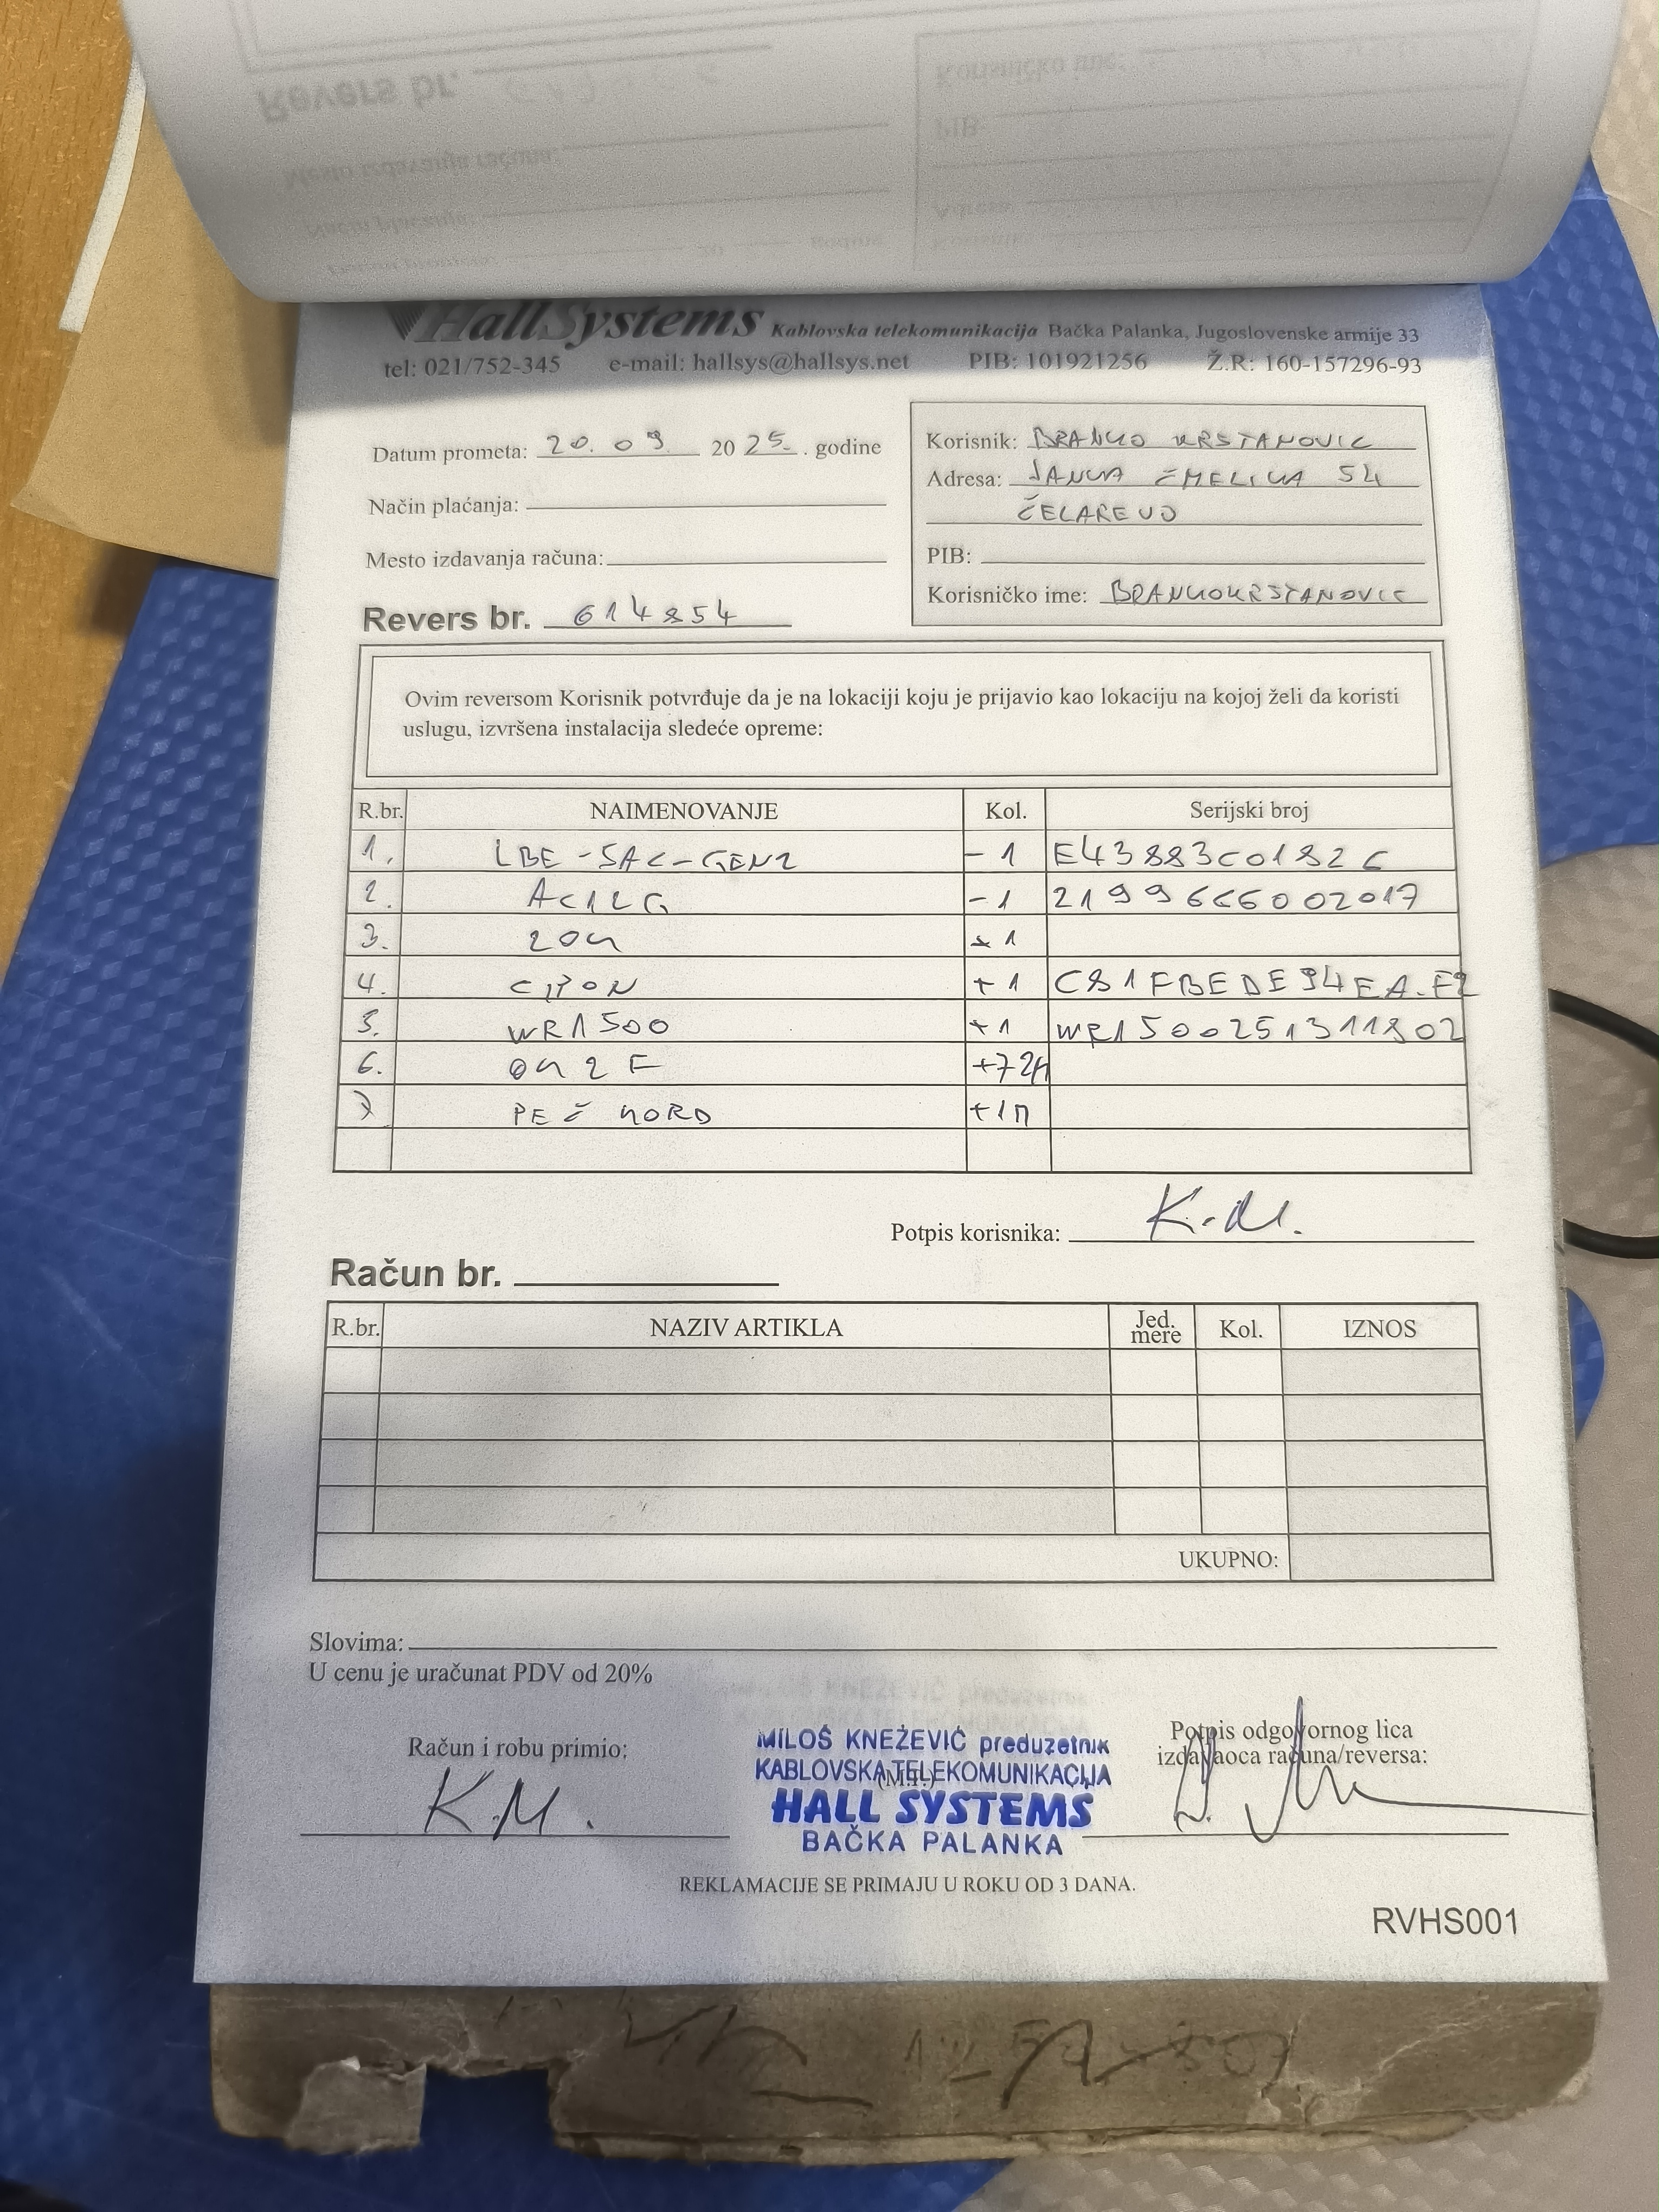 Revers br.
Korisničko ime:
PIB:
Mesto izdavanja računa:
Način plaćanja:
Adresa:
HallSystems Kablovska telekomunikacija Bačka Palanka, Jugoslovenske armije 33
tel: 021/752-345 e-mail: hallsys@hallsys.net PIB: 101921256 Ž.R: 160-157296-93
Datum prometa: 20. 09 2025. godine
Korisnik: BRANKO KRSTANOVIC
Adresa: JANKA ČMELIKA 54
Način plaćanja:
ČELAREVO
Mesto izdavanja računa:
PIB:
Korisničko ime: BRANKOKRSTANOVIC
Revers br. 614854
Ovim reversom Korisnik potvrđuje da je na lokaciji koju je prijavio kao lokaciju na kojoj želi da koristi
uslugu, izvršena instalacija sledeće opreme:
R.br. NAIMENOVANJE Kol. Serijski broj
1. LBE-5AC-GEN2 - 1 E43883C0182C
2. AC12G - 1 2199666002017
3. ± 1
4. GPON + 1
5. WR1500 +1 WR1500251311802
6. OK2F
7 PEČ KORD
Potpis korisnika: K.M.
Račun br.
R.br. NAZIV ARTIKLA Jed. mere Kol. IZNOS
UKUPNO:
Slovima:
U cenu je uračunat PDV od 20%
Račun i robu primio:
K.M.
MILOŠ KNEŽEVIĆ preduzetnik
KABLOVSKA TELEKOMUNIKACIJA
(M.P.)
HALL SYSTEMS
BAČKA PALANKA
Potpis odgovornog lica
izdavaoca računa/reversa:
REKLAMACIJE SE PRIMAJU U ROKU OD 3 DANA.
RVHS001